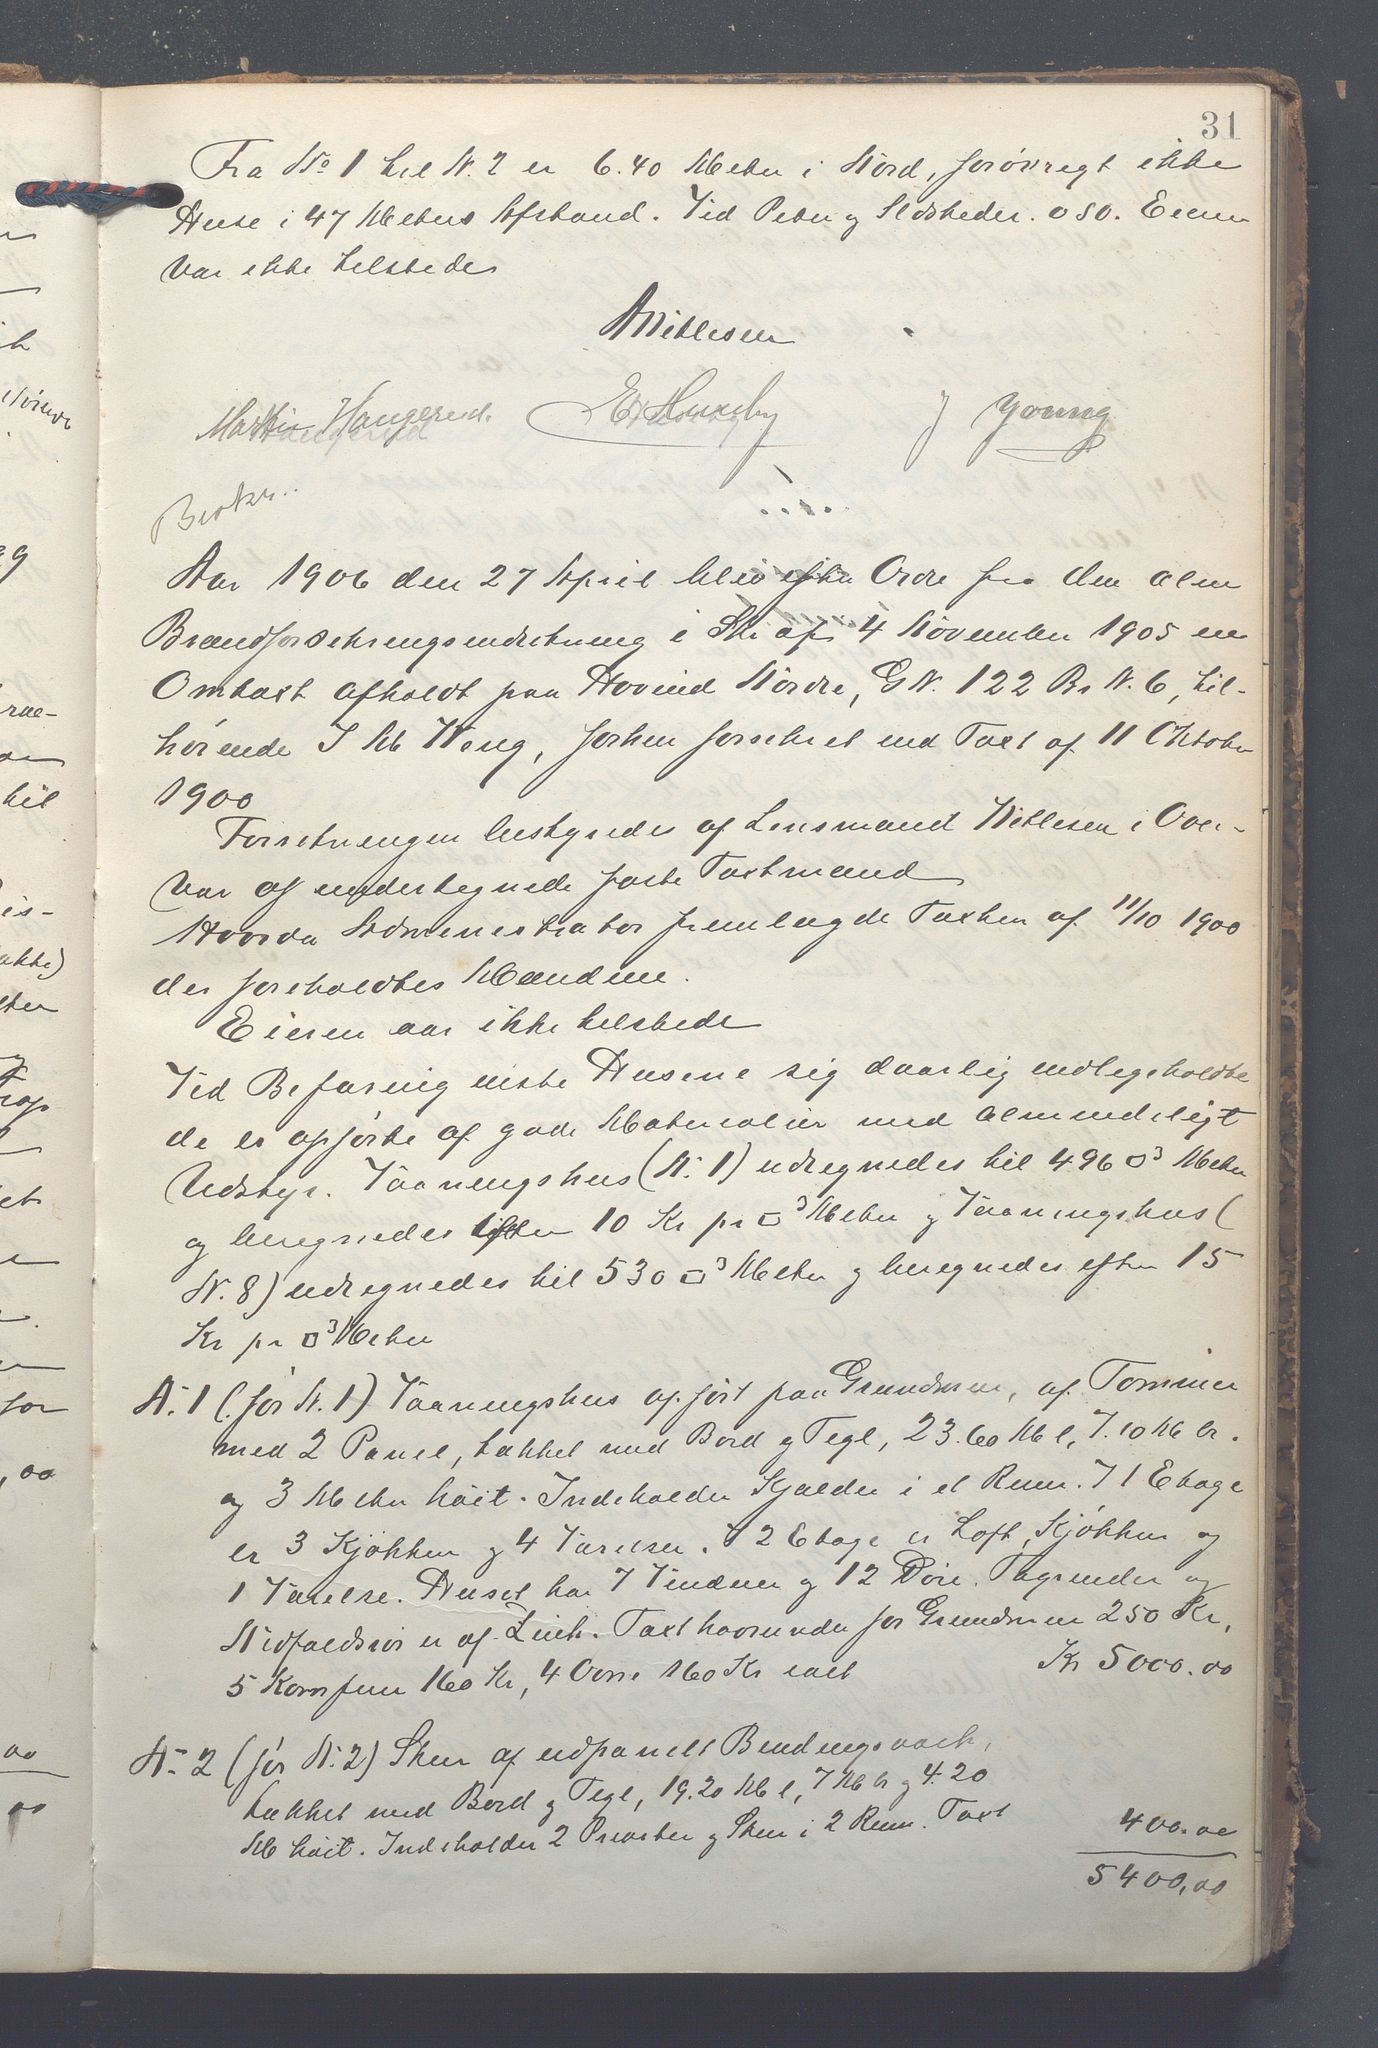 31
Fra No 1 til N. 2 er 6.40 Meter i Nord, forøvrigt ikke
Huse i 47 Meters Afstand. Ved Peter og Ildsteder. oso. Eieren
var ikke tilstede
Mitlesen
Martin Haugerud. E Huseby J Young
Aar 1906 den 27 April blev efter Ordre fra den alm
Brandforsikringsindretning i Skr af 4 November 1905 en
Omtaxt afholdt paa Hovind Nordre, GN. 122 Br N. 6, til-
hørende I M Weng, forhen forsikret ved Taxt af 11 Oktober
1900
Forretningen bestyredes af Lensmand Mitlesen i Over-
vær af undertegnede faste Taxtmænd
Hvorda Administrator fremlagde Taxten af 11/10 1900
der foreholdtes Mændene.
Eieren var ikke tilstede
Ved Befaring viste Husene sig daarlig vedligeholdte
de er opførte af gode Materialier med almindeligt
Udstyr. Vaaningshus (N. 1) udregnedes til 496 □3 Meter
og beregnedes efter 10 Kr pr □3 Meter og Vaaningshus (
N. 8) udregnedes til 530 □3 Meter og beregnedes efter 15
Kr pr □3 Meter
N. 1 (før N. 1) Vaaningshus opført paa Grundmur, af Tømmer
med 2 Panel, tækket med Bord og Tegl, 23.60 M l, 7.10 M br.
og 3 Meter høit. Indeholder Kjælder i et Rum. I 1 Etage
er 3 Kjøkken og 4 Værelser. I 2 Etage er Loft, Kjøkken og
1 Værelse. Huset har 7 Vinduer og 12 Døre. Tagrender og
Nedfaldsrør er af Zink. Taxt hvorunder for Grundmur 250 Kr,
5 Komfurer 160 Kr, 4 Ovne 160 Kr ialt Kr 5000.00
N. 2 (før N. 2) Skur af udpanelt Bindingsværk,
tækket med Bord og Tegl, 19.20 M l, 7 M b og 4.20
M høit. Indeholder 2 Priveter og Skur i 2 Rum. Taxt 400.00
5400,00